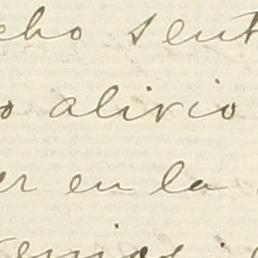 cho sent
o alivio
er en la